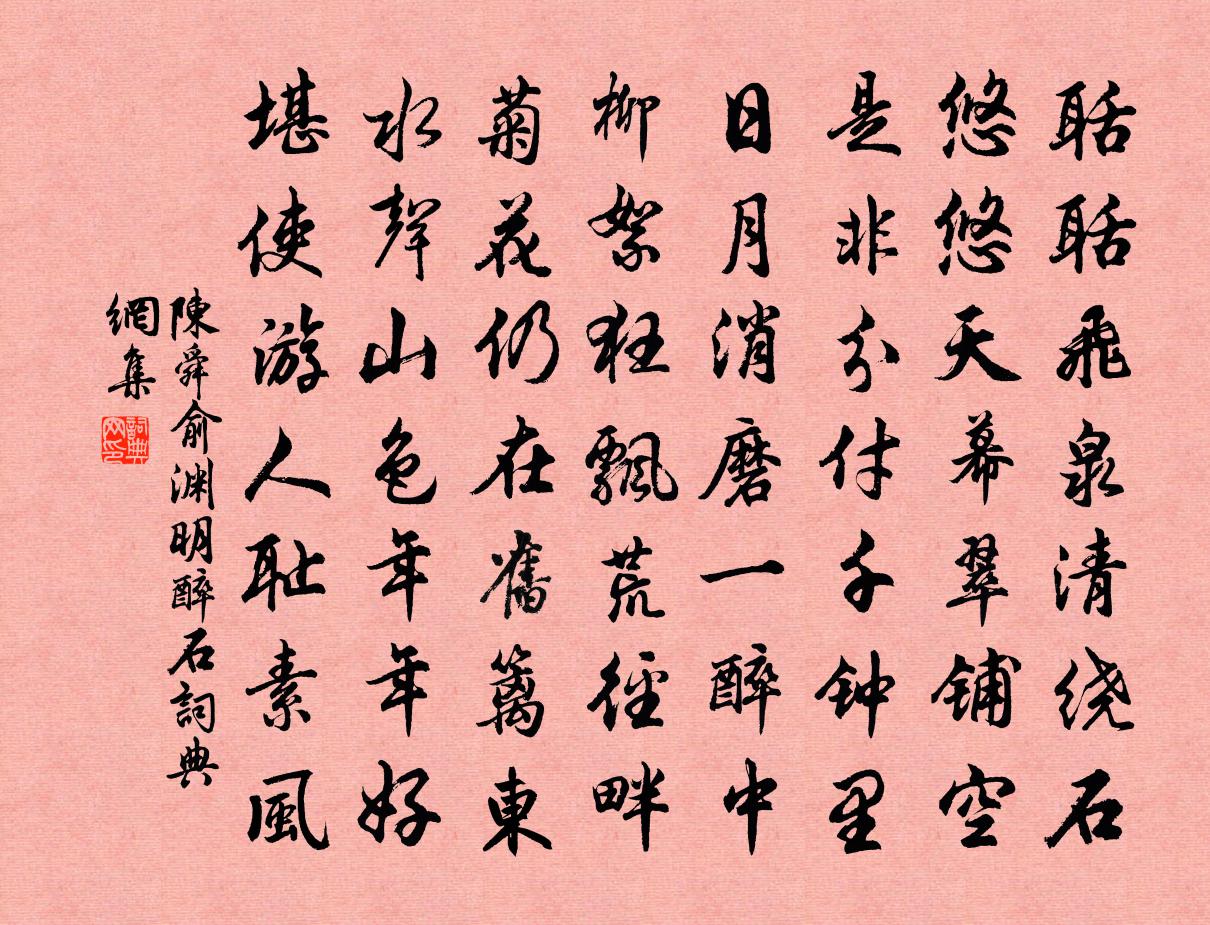 聒聒飛泉清绕石
悠悠天幕翠铺空
是非分付千钟里
日月消磨一醉中
柳絮狂飄荒径畔
菊花仍在舊篱東
水聲山色年年好
堪使游人耻素風
陳舜俞渊明醉石詞典
網集
詞典
网印